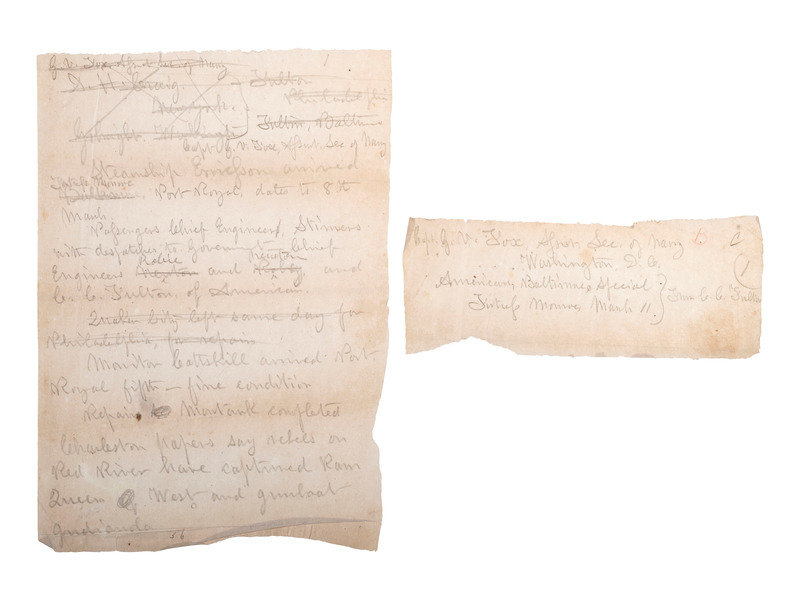 G. V. Fox, Asst Sec. of Navy 1
D. H. Craig, Fulton
New York. Philadelphia
Fulton, Baltimore
Capt G. V. Fox Assnt. Sec. of Navy
Steamship Ericsson arrived
Fortress Monroe
Port Royal, dates to 8th
March.
Passengers Chief Engineer, Stimers
with despatches to Government Chief
Robie Newton
Engineers and and
C. C. Fulton, of American.
Quaker City left same day for
Philadelphia, for repairs
Monitor Cattskill arrived Port
Royal fifth - fine condition
Repairs to Montauk completed
Charleston papers say rebels on
Red River have captured Ram
Queen of West and gunboat
Indianola
56
Capt. G. V. Fox, Assnt. Sec. of Navy
Washington D. C.
American, Baltimore, Special
Fortress Monroe, March 11. } From C. C. Fulton
1